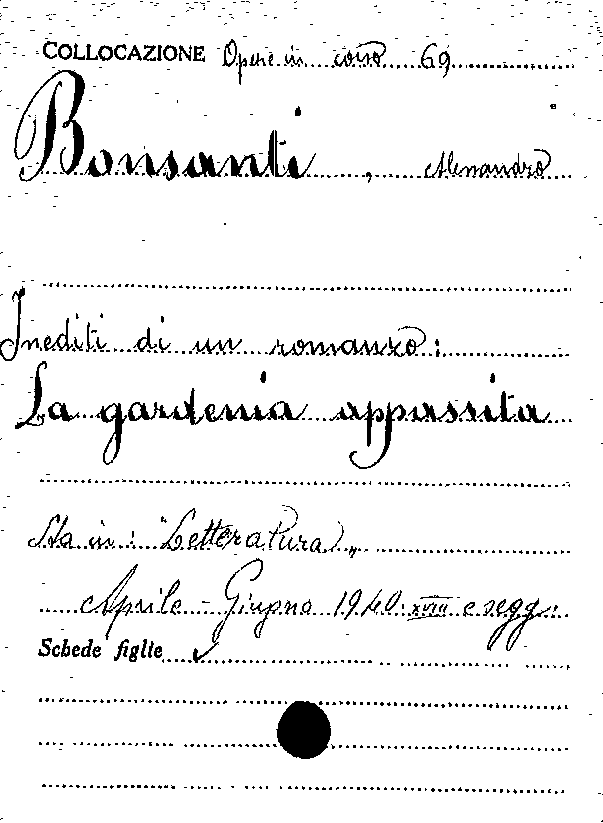 COLLOCAZIONE Opere in corso 69
Bonsanti, Alessandro
Inediti di un romanzo:
La gardenia appassita
Sta in: "Letteratura„
Aprile - Giugno 1940. XVIII e segg.
Schede figlie ✓